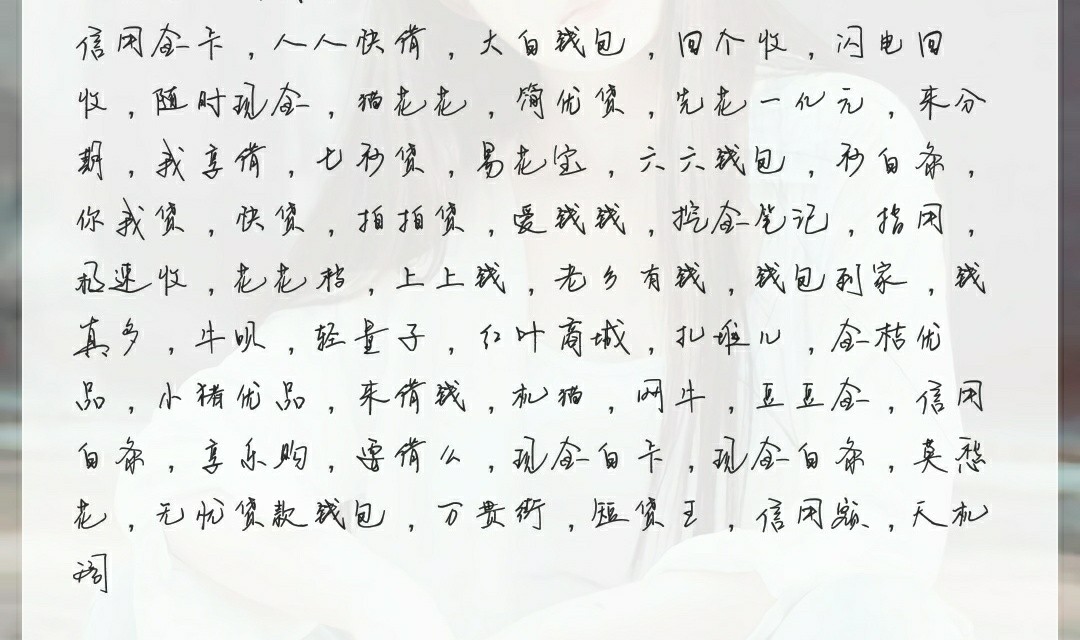 信用金卡，人人快借，大白钱包，回个收，闪电回
收，随时现金，猫花花，简优贷，先花一亿元，来分
期，我享借，七秒贷，易花宝，六六钱包，秒白条，
你我贷，快贷，拍拍贷，爱钱钱，挖金笔记，指用，
极速收，花花档，上上钱，老乡有钱，钱包到家，钱
真多，牛呗，轻量子，红叶商城，扎堆儿，金桔优
品，小猪优品，来借钱，机猫，网牛，豆豆金，信用
白条，享乐购，要借么，现金白卡，现金白条，莫愁
花，无忧贷款钱包，万贵街，短贷王，信用额，天机
阁